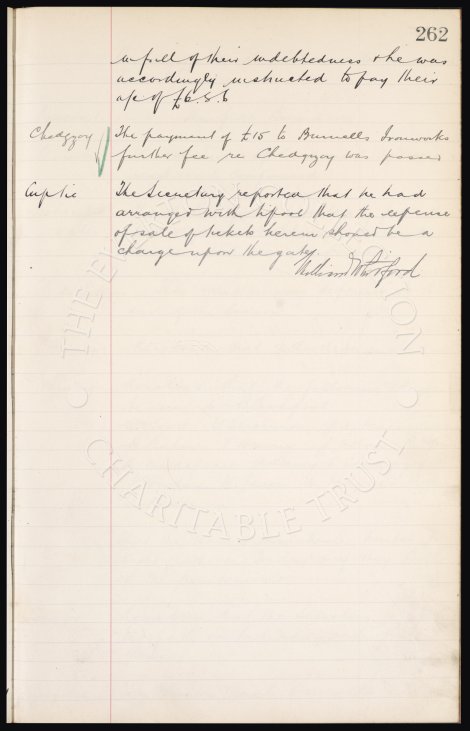 262
in full of their indebtedness & he was
accordingly instructed to pay their
a/c of £6.8.6
Chedgzoy
The payment of £15 to Burnells Ironworks
further fee re Chedgzoy was passed
Cup tie
The Secretary reported that he had
arranged with L'pool that the expense
of sale of tickets herein should be a
charge upon the gate.
William Whitford
THE EVERTON COLLECTION
CHARITABLE TRUST